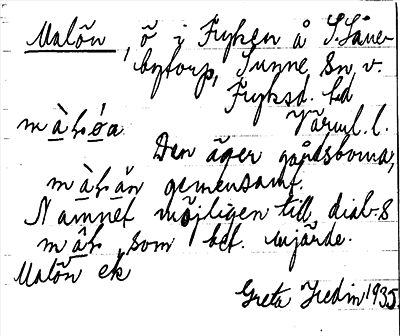 Malön, ö i Fryken å S. Låne-
bytorp, Sunne Sn v.
Fryksd. hd
Värml. l.
Den äger gårdsborna,
gemensamt.
Namnet möjligen till dial.
som bet. mjärde.
Malön ek
Greta Hedin 1935.